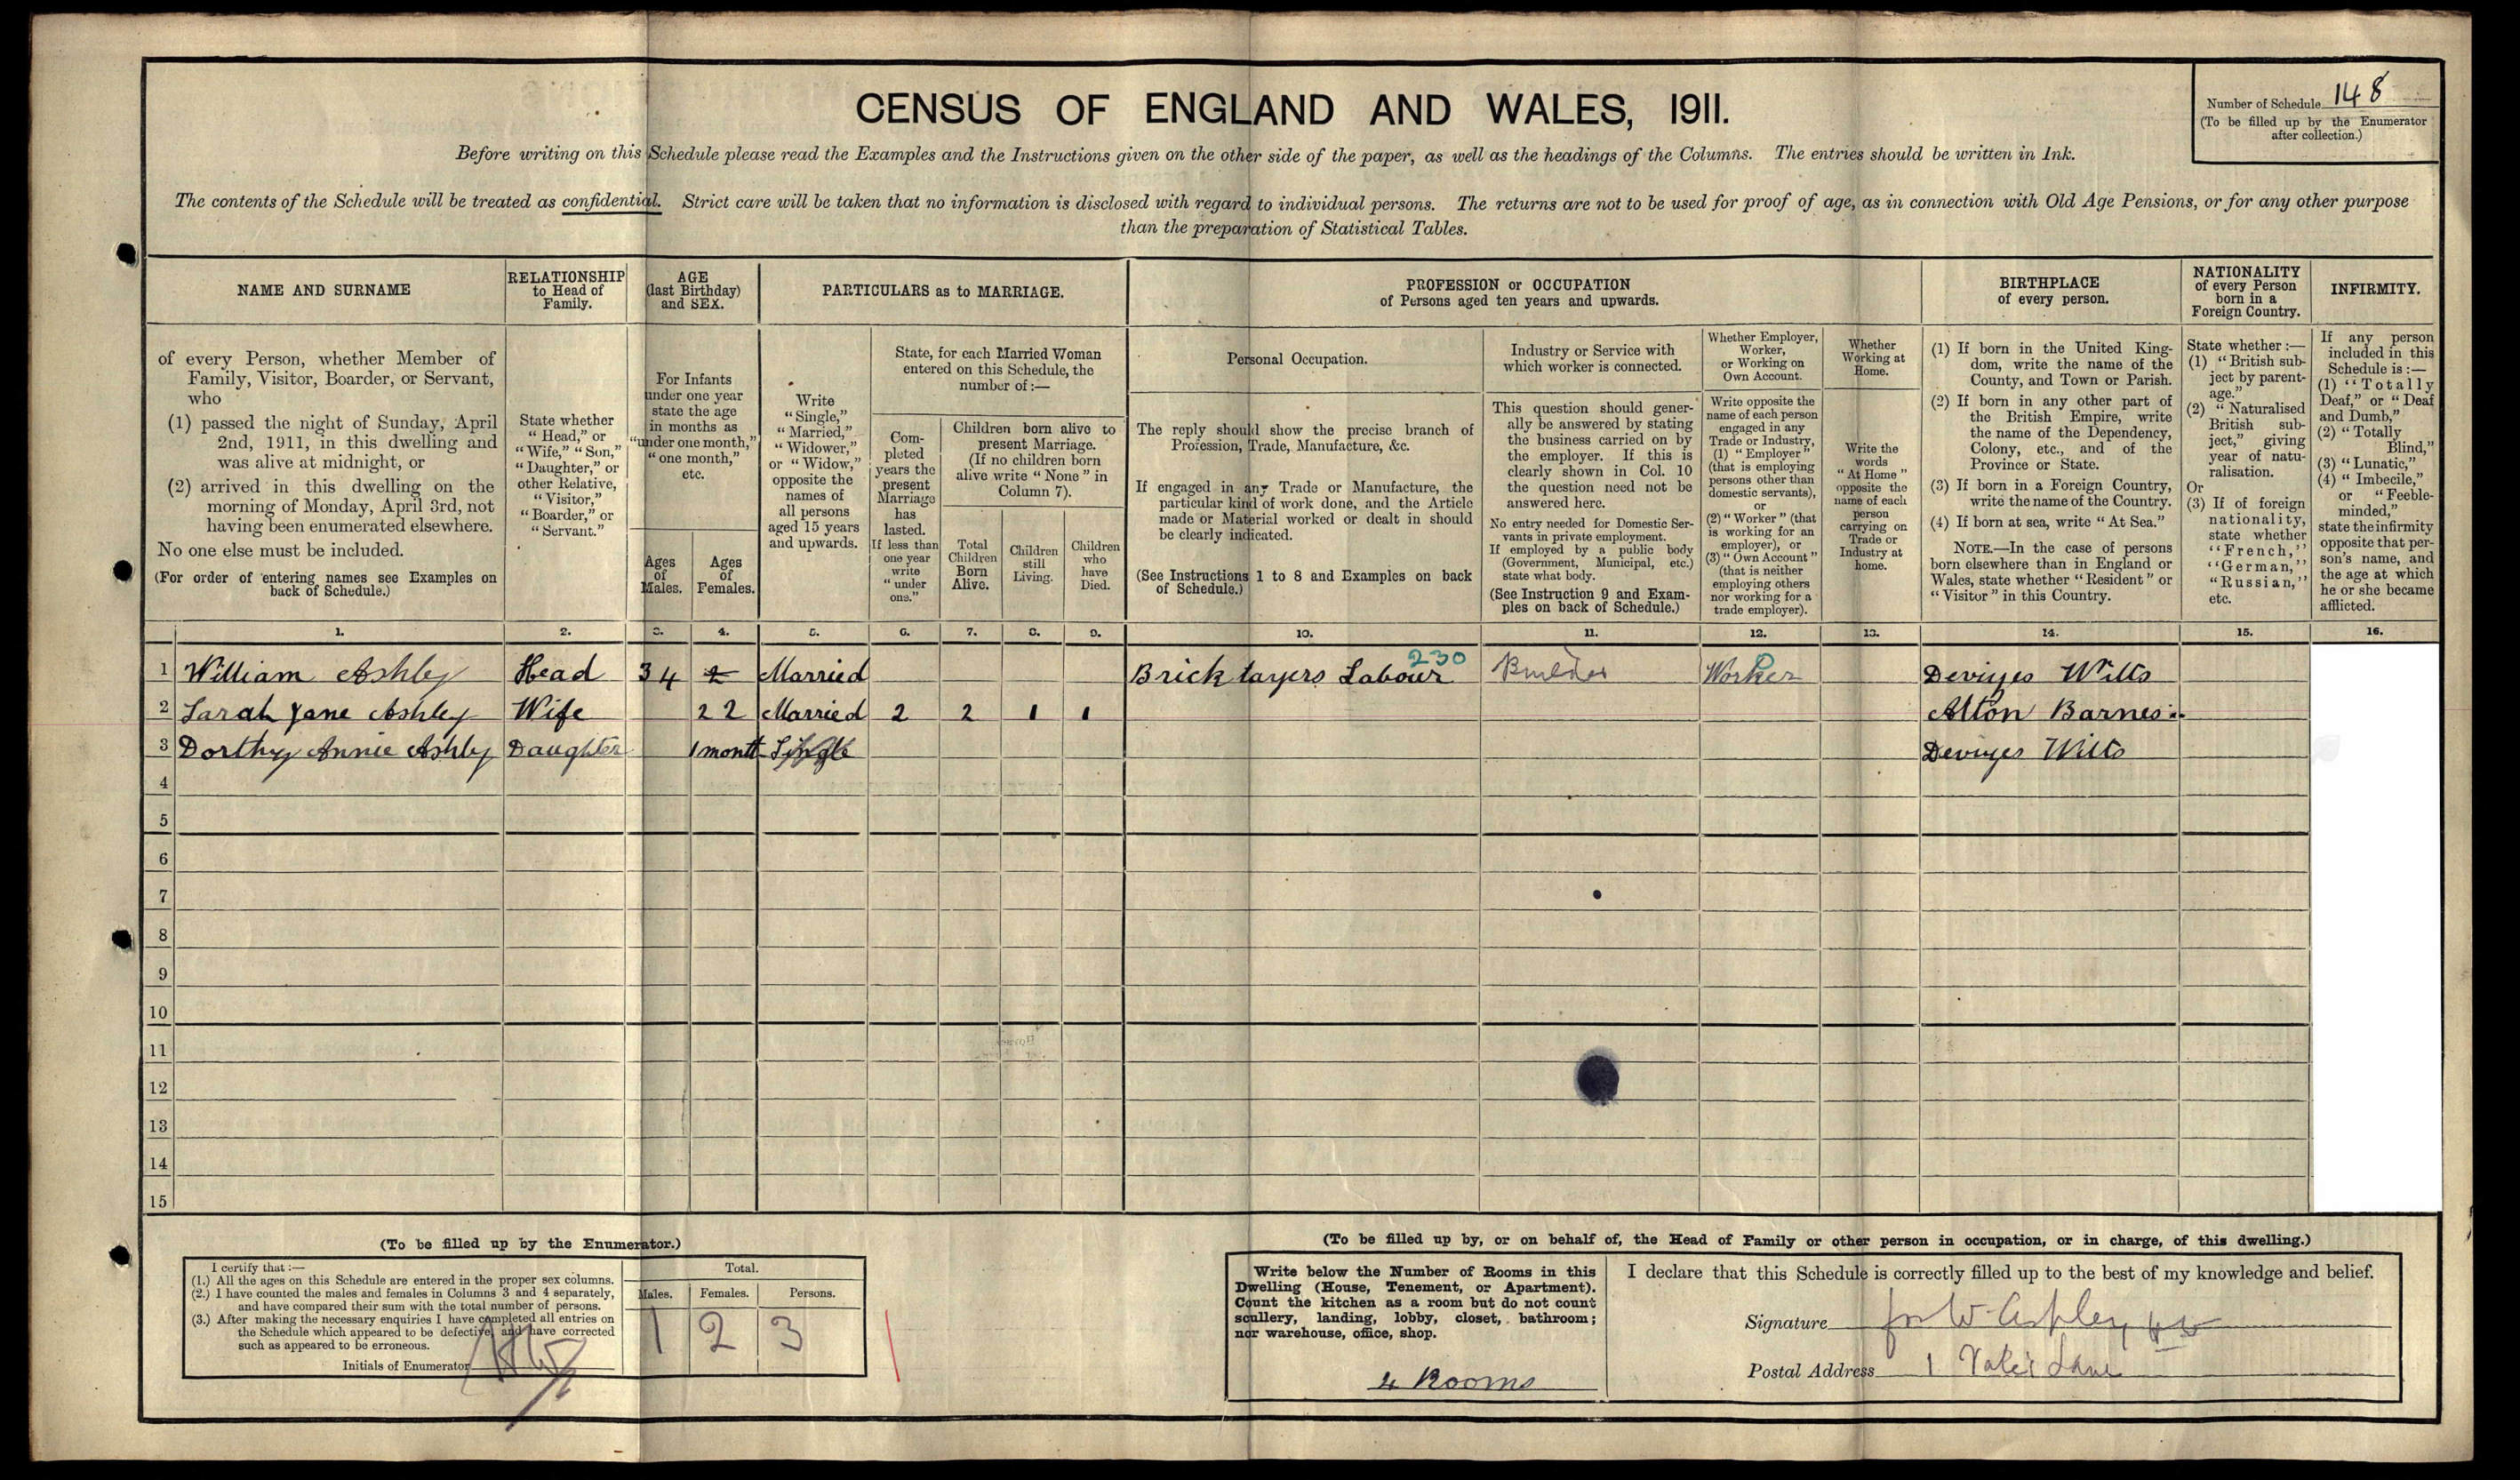 CENSUS OF ENGLAND AND WALES, 1911.
Number of Schedule 148
(To be filled up by the Enumerator
after collection.)
Before writing on this Schedule please read the Examples and the Instructions given on the other side of the paper, as well as the headings of the Columns. The entries should be written in Ink.
The contents of the Schedule will be treated as confidential. Strict care will be taken that no information is disclosed with regard to individual persons. The returns are not to be used for proof of age, as in connection with Old Age Pensions, or for any other purpose
than the preparation of Statistical Tables.
NAME AND SURNAME
RELATIONSHIP
to Head of
Family.
AGE
(last Birthday)
and SEX.
PARTICULARS as to MARRIAGE.
PROFESSION or OCCUPATION
of Persons aged ten years and upwards.
BIRTHPLACE
of every person.
NATIONALITY
of every Person
born in a
Foreign Country.
INFIRMITY.
of every Person, whether Member of
Family, Visitor, Boarder, or Servant,
who
(1) passed the night of Sunday, April
2nd, 1911, in this dwelling and
was alive at midnight, or
(2) arrived in this dwelling on the
morning of Monday, April 3rd, not
having been enumerated elsewhere.
No one else must be included.
(For order of entering names see Examples on
back of Schedule.)
State whether
"Head," or
"Wife," "Son,"
"Daughter," or
other Relative,
"Visitor,"
"Boarder," or
"Servant."
For Infants
under one year
state the age
in months as
"under one month,"
"one month,"
etc.
Ages
of
Males.
Ages
of
Females.
Write
"Single,"
"Married,"
"Widower,"
or "Widow,"
opposite the
names of
all persons
aged 15 years
and upwards.
State, for each Married Woman
entered on this Schedule, the
number of:—
Com-
pleted
years the
present
Marriage
has
lasted.
If less than
one year
write
"under
one."
Children born alive to
present Marriage.
(If no children born
alive write "None" in
Column 7).
Total
Children
Born
Alive.
Children
still
Living.
Children
who
have
Died.
Personal Occupation.
The reply should show the precise branch of
Profession, Trade, Manufacture, &c.
If engaged in any Trade or Manufacture, the
particular kind of work done, and the Article
made or Material worked or dealt in should
be clearly indicated.
(See Instructions 1 to 8 and Examples on back
of Schedule.)
Industry or Service with
which worker is connected.
This question should gener-
ally be answered by stating
the business carried on by
the employer. If this is
clearly shown in Col. 10
the question need not be
answered here.
No entry needed for Domestic Ser-
vants in private employment.
If employed by a public body
(Government, Municipal, etc.)
state what body.
(See Instruction 9 and Exam-
ples on back of Schedule.)
Whether Employer,
Worker,
or Working on
Own Account.
Write opposite the
name of each person
engaged in any
Trade or Industry,
(1) "Employer"
(that is employing
persons other than
domestic servants),
or
(2) "Worker" (that
is working for an
employer), or
(3) "Own Account"
(that is neither
employing others
nor working for a
trade employer).
Whether
Working at
Home.
Write the
words
"At Home"
opposite the
name of each
person
carrying on
Trade or
Industry at
home.
(1) If born in the United King-
dom, write the name of the
County, and Town or Parish.
(2) If born in any other part of
the British Empire, write
the name of the Dependency,
Colony, etc., and of the
Province or State.
(3) If born in a Foreign Country,
write the name of the Country.
(4) If born at sea, write "At Sea."
NOTE.—In the case of persons
born elsewhere than in England or
Wales, state whether "Resident" or
"Visitor" in this Country.
State whether:—
(1) "British sub-
ject by parent-
age."
(2) "Naturalised
British sub-
ject," giving
year of natu-
ralisation.
Or
(3) If of foreign
nationality,
state whether
"French,"
"German,"
"Russian,"
etc.
If any person
included in this
Schedule is:—
(1) "Totally
Deaf," or "Deaf
and Dumb,"
(2) "Totally
Blind,"
(3) "Lunatic,"
(4) "Imbecile,"
or "Feeble-
minded,"
state the infirmity
opposite that per-
son's name, and
the age at which
he or she became
afflicted.
1. 2. 3. 4. 5. 6. 7. 8. 9. 10. 11. 12. 13. 14. 15. 16.
1 William Ashley Head 34 2 Married Brick layers Labour 230 Builder Worker Devizes Wilts
2 Sarah Jane Ashley Wife 22 Married 2 2 1 1 Alton Barnes
3 Dorthy Annie Ashley Daughter 1 month Single Devizes Wilts
4
5
6
7
8
9
10
11
12
13
14
15
(To be filled up by the Enumerator.)
I certify that:—
(1.) All the ages on this Schedule are entered in the proper sex columns.
(2.) I have counted the males and females in Columns 3 and 4 separately,
and have compared their sum with the total number of persons.
(3.) After making the necessary enquiries I have completed all entries on
the Schedule which appeared to be defective, and have corrected
such as appeared to be erroneous.
Initials of Enumerator
Total.
Males. Females. Persons.
1 2 3
(To be filled up by, or on behalf of, the Head of Family or other person in occupation, or in charge, of this dwelling.)
Write below the Number of Rooms in this
Dwelling (House, Tenement, or Apartment).
Count the kitchen as a room but do not count
scullery, landing, lobby, closet, bathroom;
nor warehouse, office, shop.
4 Rooms
I declare that this Schedule is correctly filled up to the best of my knowledge and belief.
Signature for W Ashley
Postal Address 1 Lane